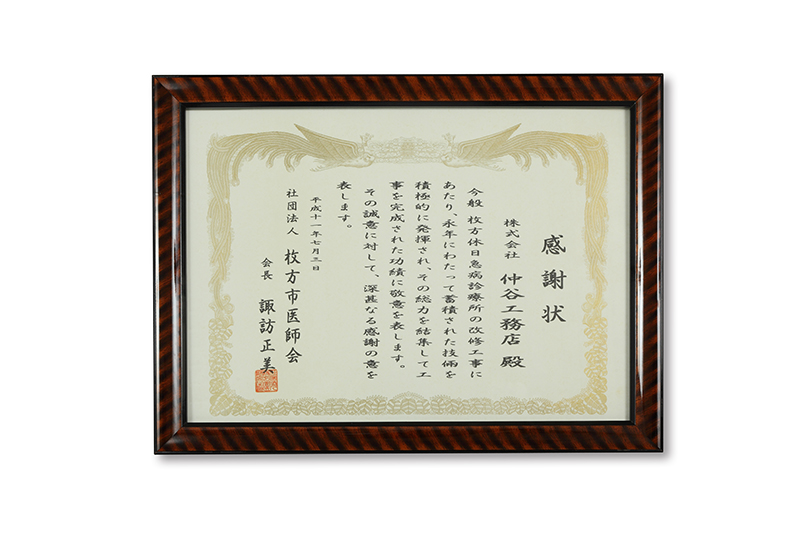 感謝状
株式会社 仲谷工務店 殿
今般 枚方休日急病診療所の改修工事に
あたり、永年にわたって蓄積された技倆を
積極的に発揮され、その総力を結集して工
事を完成された功績に敬意を表します。
その誠意に対して、深甚なる感謝の意を
表します。
平成十一年七月三日
社団法人 枚方市医師会
会長 諏訪正美